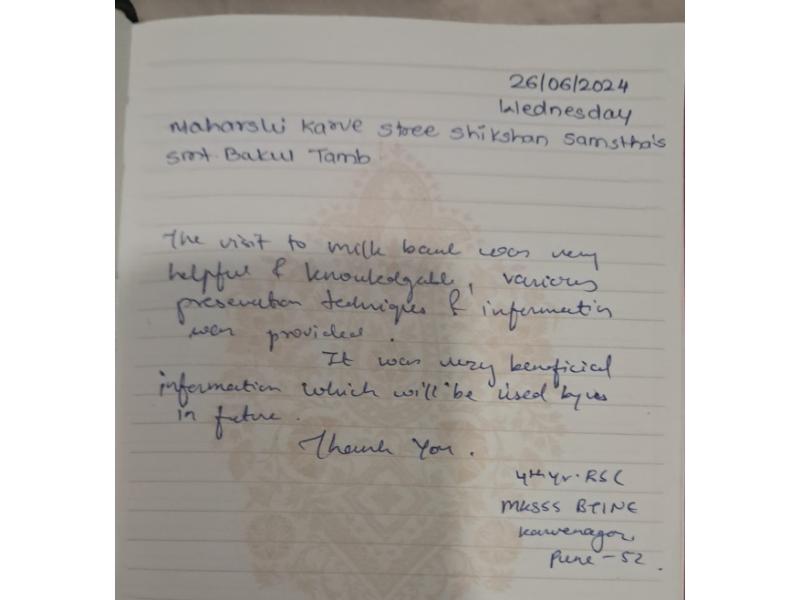 26/06/2024
Wednesday
Maharshi Karve Stree Shikshan Samstha's
Smt. Bakul Tamb
The visit to milk bank was very
helpful & knowledgable, various
preservation techniques & information
was provided.
It was very beneficial
information which will be used by us
in future.
Thank You.
4th yr. BSC
MKSSS BTINE
Karvenagar,
Pune - 52.